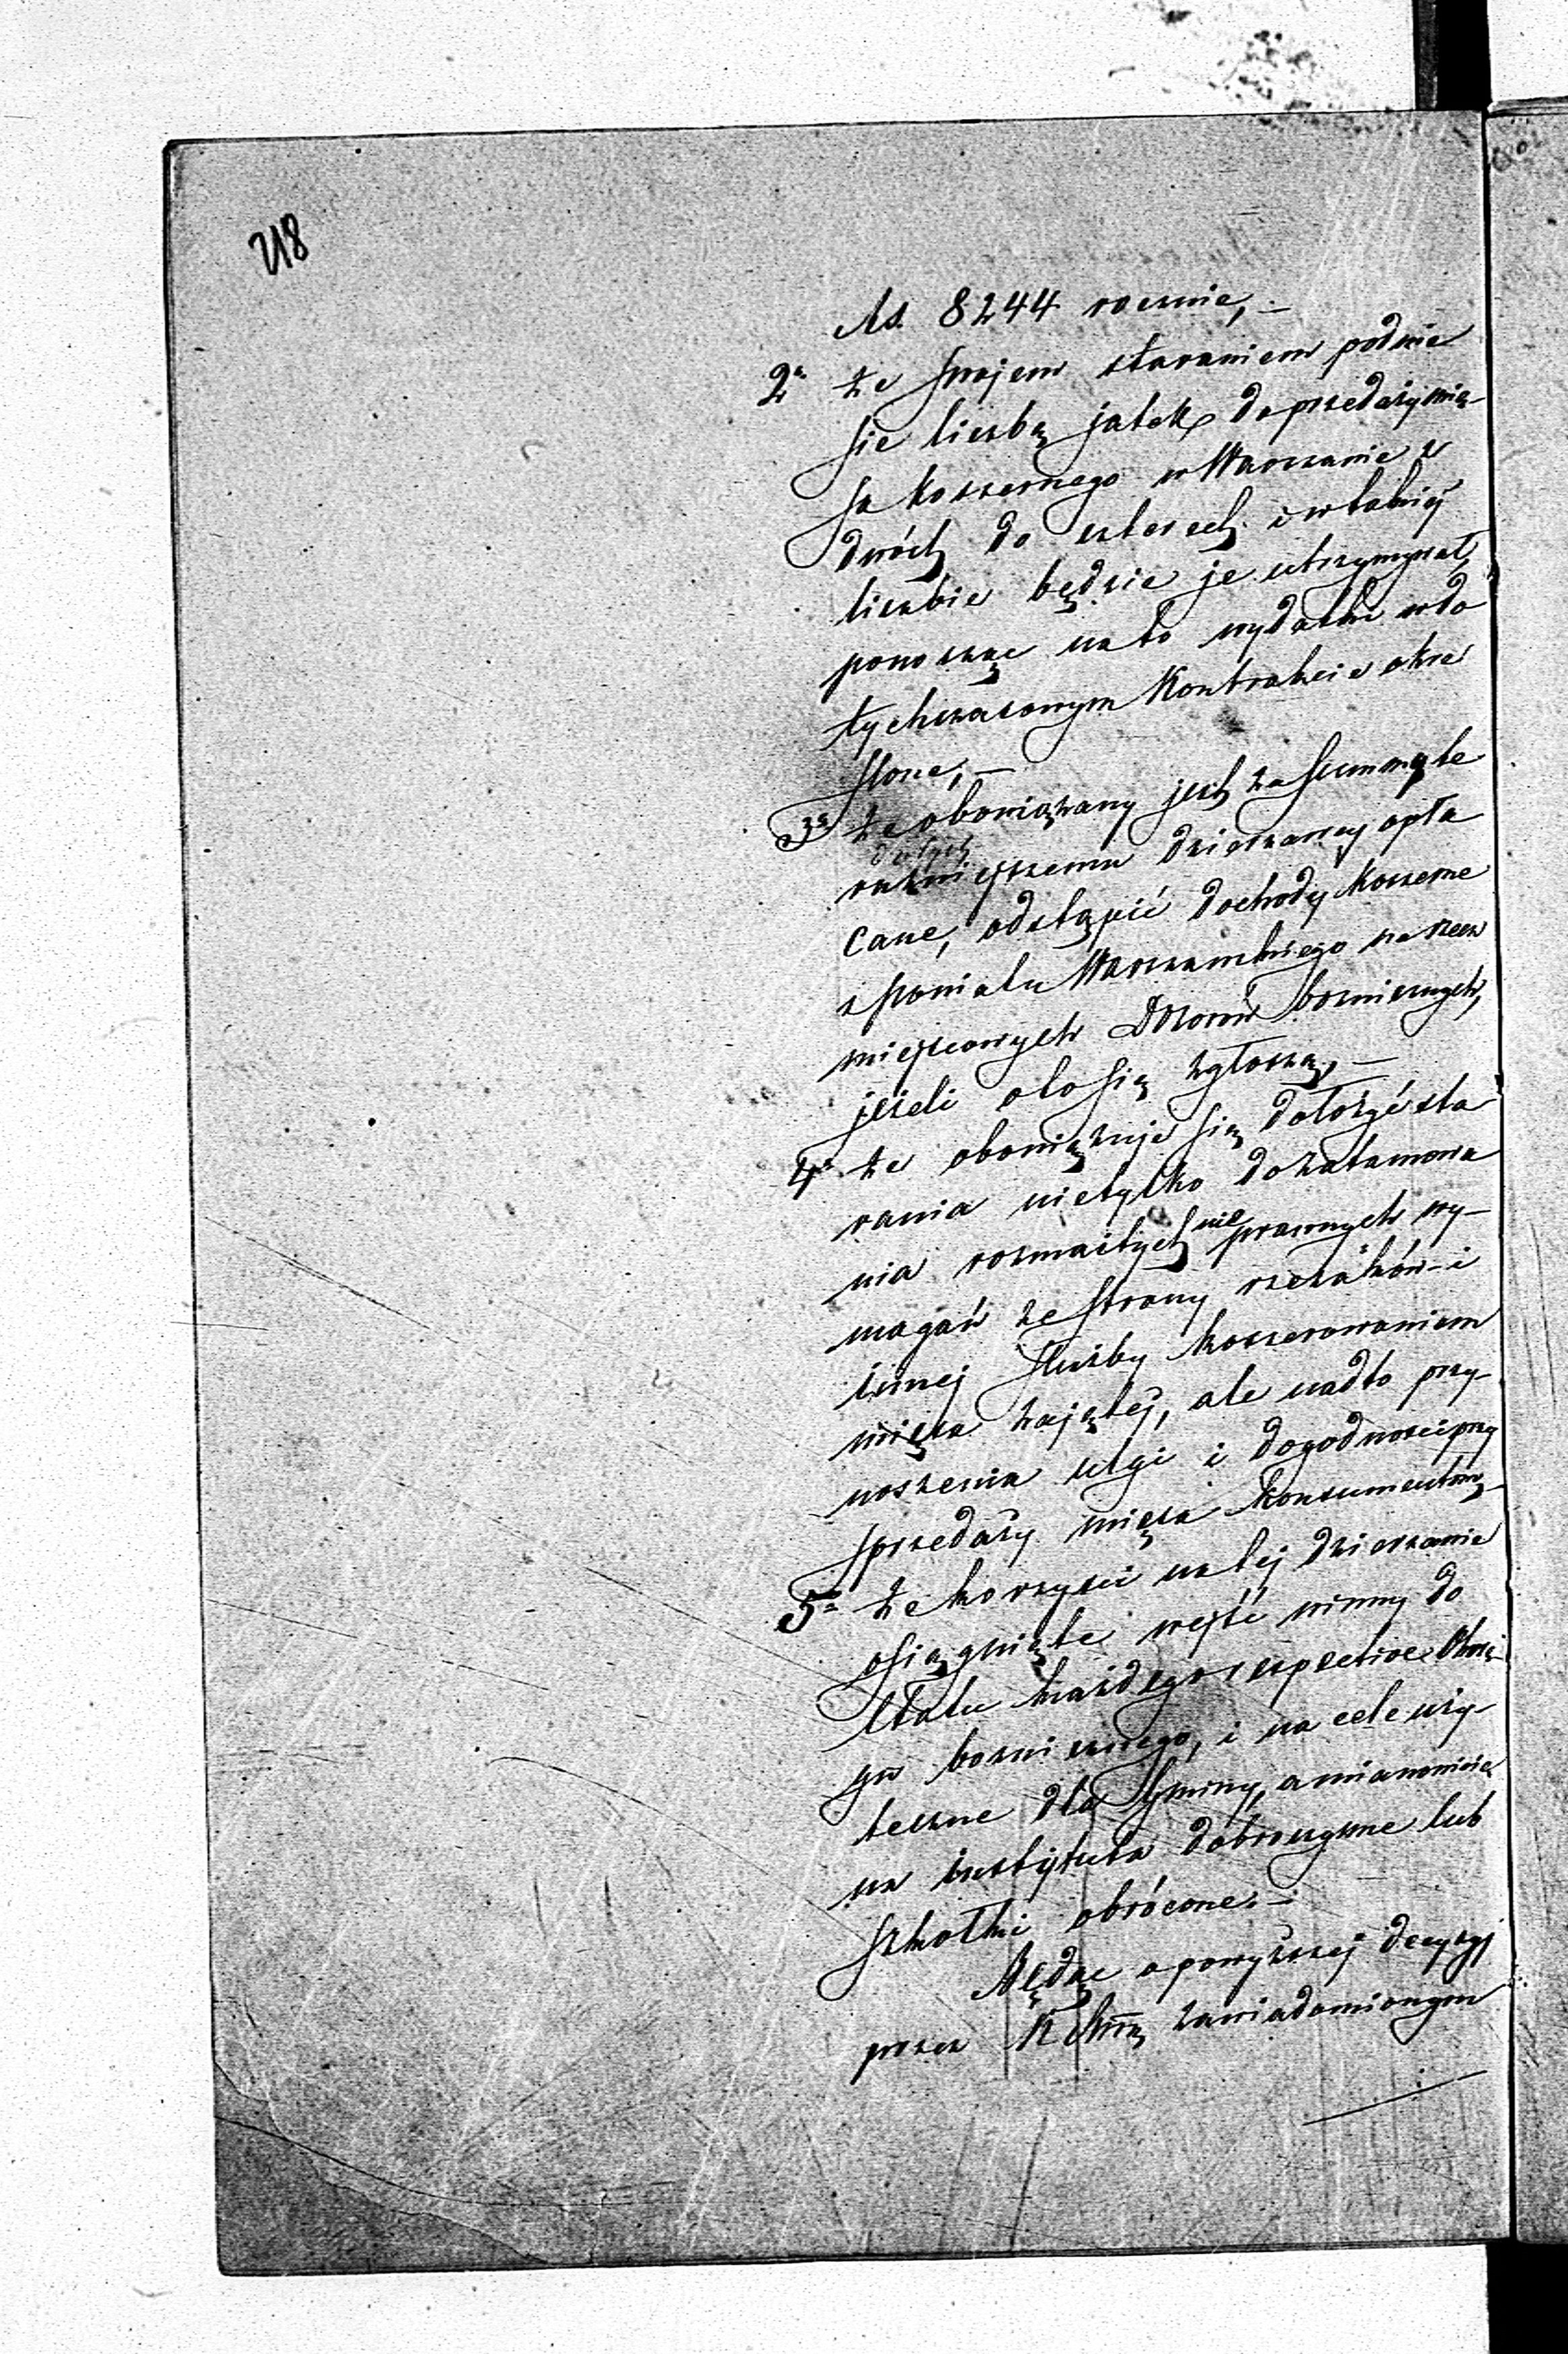 218
Rs. 8244 rocznie, —
2e że swojem staraniem podnie
sie liczbę jatek do przedaży mię-
sa koszernego w Warszawie z
dwóch do czterech i w takiej
liczbie będzie je utrzymywał,
ponosząc na to wydatki w do
tychczasowym Kontrakcie okre
ślone, —
3e że obowiązany jest za summę te
dotych
raźniejszemu dzierżawcy opła
cane, odstąpić dochody koszerne
z powiatu Warszawskiego na rzecz
miejscowych Dozorów bożniczych,
jeżeli o to się zgłoszą, —
4e że obowiązuje się dołożyć sta
rania nietylko do zatamowa
nia rozmaitych nieprawnych wy-
magań ze strony rzezaków i
innej służby koszerowaniem
mięsa zajętej, ale nadto przy-
noszenia ulgi i dogodności przy
sprzedaży mięsa konsumentom,
5e że korzyści na tej dzierżawie
osiągnięte wejść winny do
Etatu każdego respective Okrę-
gu bożniczego, i na cele uży-
teczne dla Gminy, a mianowicie
na instytuta dobroczynne lub
szkółki obrócone. —
Będąc o powyższej decyzyi
przez K zawiadomionym